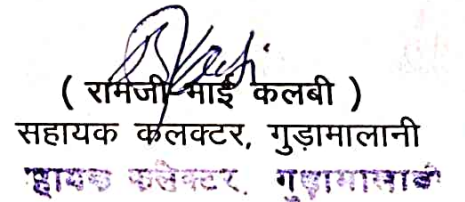 ( रामजी भाई कलबी )
सहायक कलक्टर, गुड़ामालानी
हायक कलेक्टर, गुड़ामालानी